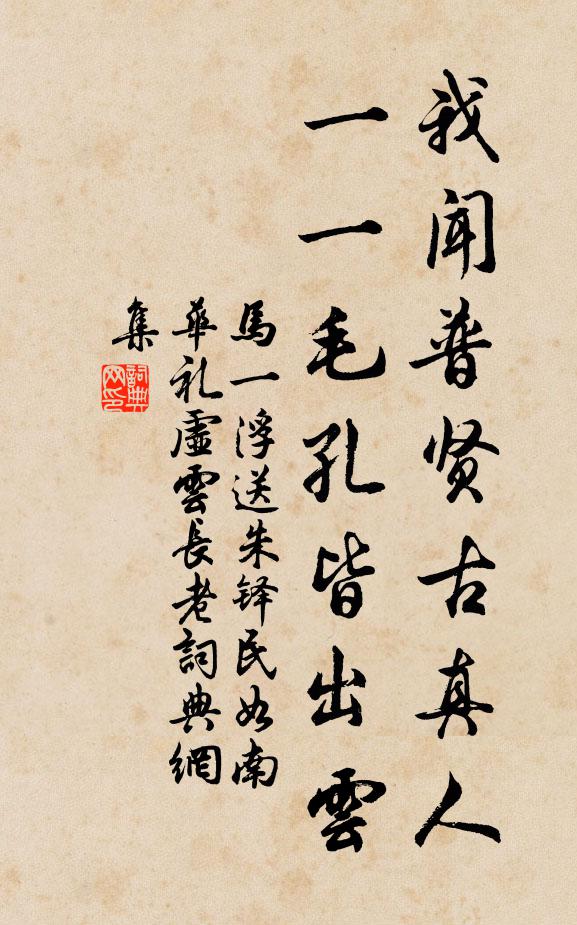 我闻普贤古真人
一一毛孔皆出雲
馬一浮送朱铎民如南
華礼虚雲長老詞典網
集
詞典网印